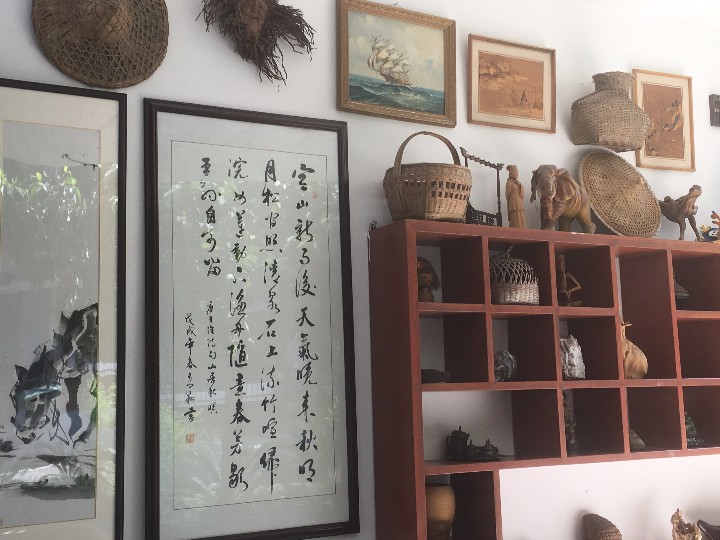 空山新雨後天氣晚來秋明
月松間照清泉石上流竹喧歸
浣女蓮動下漁舟隨意春芳歇
王孫自可留
唐王維詩句山居秋暝
戊戌年春書